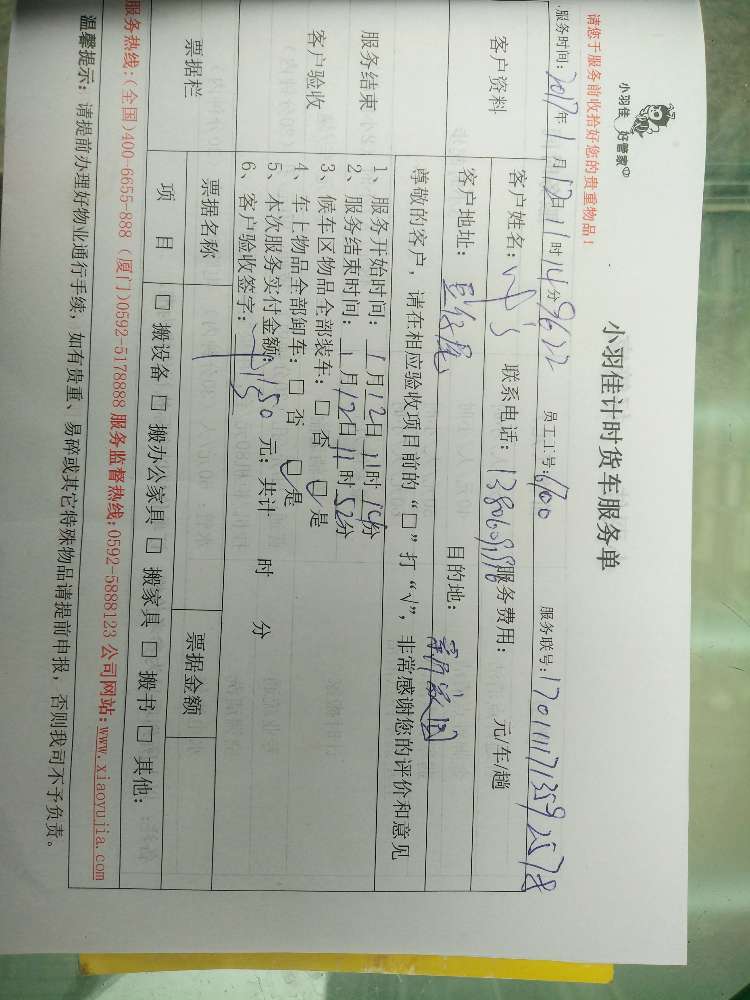 小羽佳 好管家
小羽佳计时货车服务单
请您于服务前收拾好您的贵重物品！
服务时间：2017年1月12日11时14分 9622 员工工号：6700 服务联号：170111713592578
客户资料 客户姓名： 联系电话： 服务费用： 元/车/趟
客户地址： 目的地：
尊敬的客户，请在相应验收项目前的“□”打“√”，非常感谢您的评价和意见
服务结束
客户验收
1、服务开始时间：1月12日11时14分
2、服务结束时间：1月12日11时52分
3、候车区物品全部装车：□ 否 ☑ 是
4、车上物品全部卸车：□ 否 ☑ 是
5、本次服务实付金额：150 元；共计 时 分
6、客户验收签字：
票据栏 票据名称 票据金额
项 目 □ 搬设备 □ 搬办公家具 □ 搬家具 □ 搬书 □ 其他：
服务热线：(全国)400-6655-888 (厦门)0592-5178888 服务监督热线：0592-5888123 公司网站：www.xiaoyujia.com
温馨提示：请提前办理好物业通行手续，如有贵重、易碎或其它特殊物品请提前申报，否则我司不予负责。